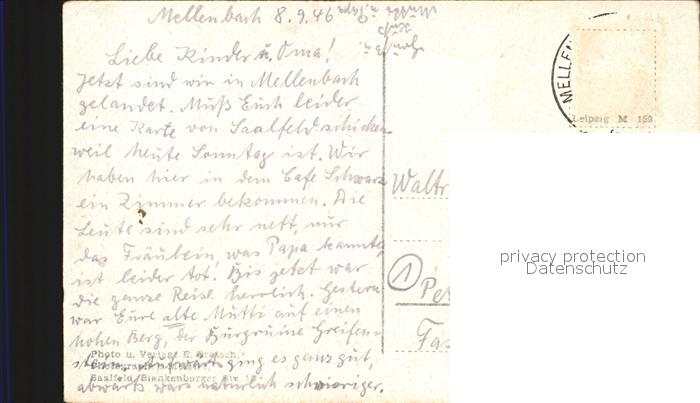 Mellenbach 8.9.46
Liebe Kinder u. Oma!
Jetzt sind wir in Mellenbach
gelandet. Muß Euch leider
eine Karte von Saalfeld schicken
weil heute Sonntag ist. Wir
haben hier in dem Cafe Schwarz
ein Zimmer bekommen. Die
Leute sind sehr nett, nur
das Fräulein, was Papa kannte,
ist leider tot. Bis jetzt war
die ganze Reise herrlich. Gestern
war Eure alte Mutti auf einen
hohen Berg, der Burgruine Greifen-
stein. Aufwärts ging es ganz gut,
abwärts wars natürlich schwieriger.
Photo u. Verlag E.
Saalfeld, Blankenburger Str.
MELLE
Leipzig M 169
Waltr
1
Pe
privacy protection
Datenschutz